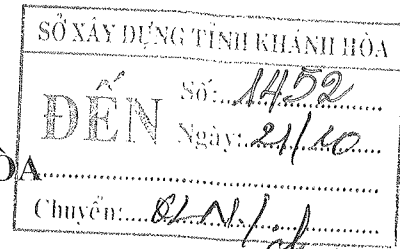 SỞ XÂY DỰNG TỈNH KHÁNH HÒA
ĐẾN
Số: 1452
Ngày: 21/10
ÒA
Chuyển: